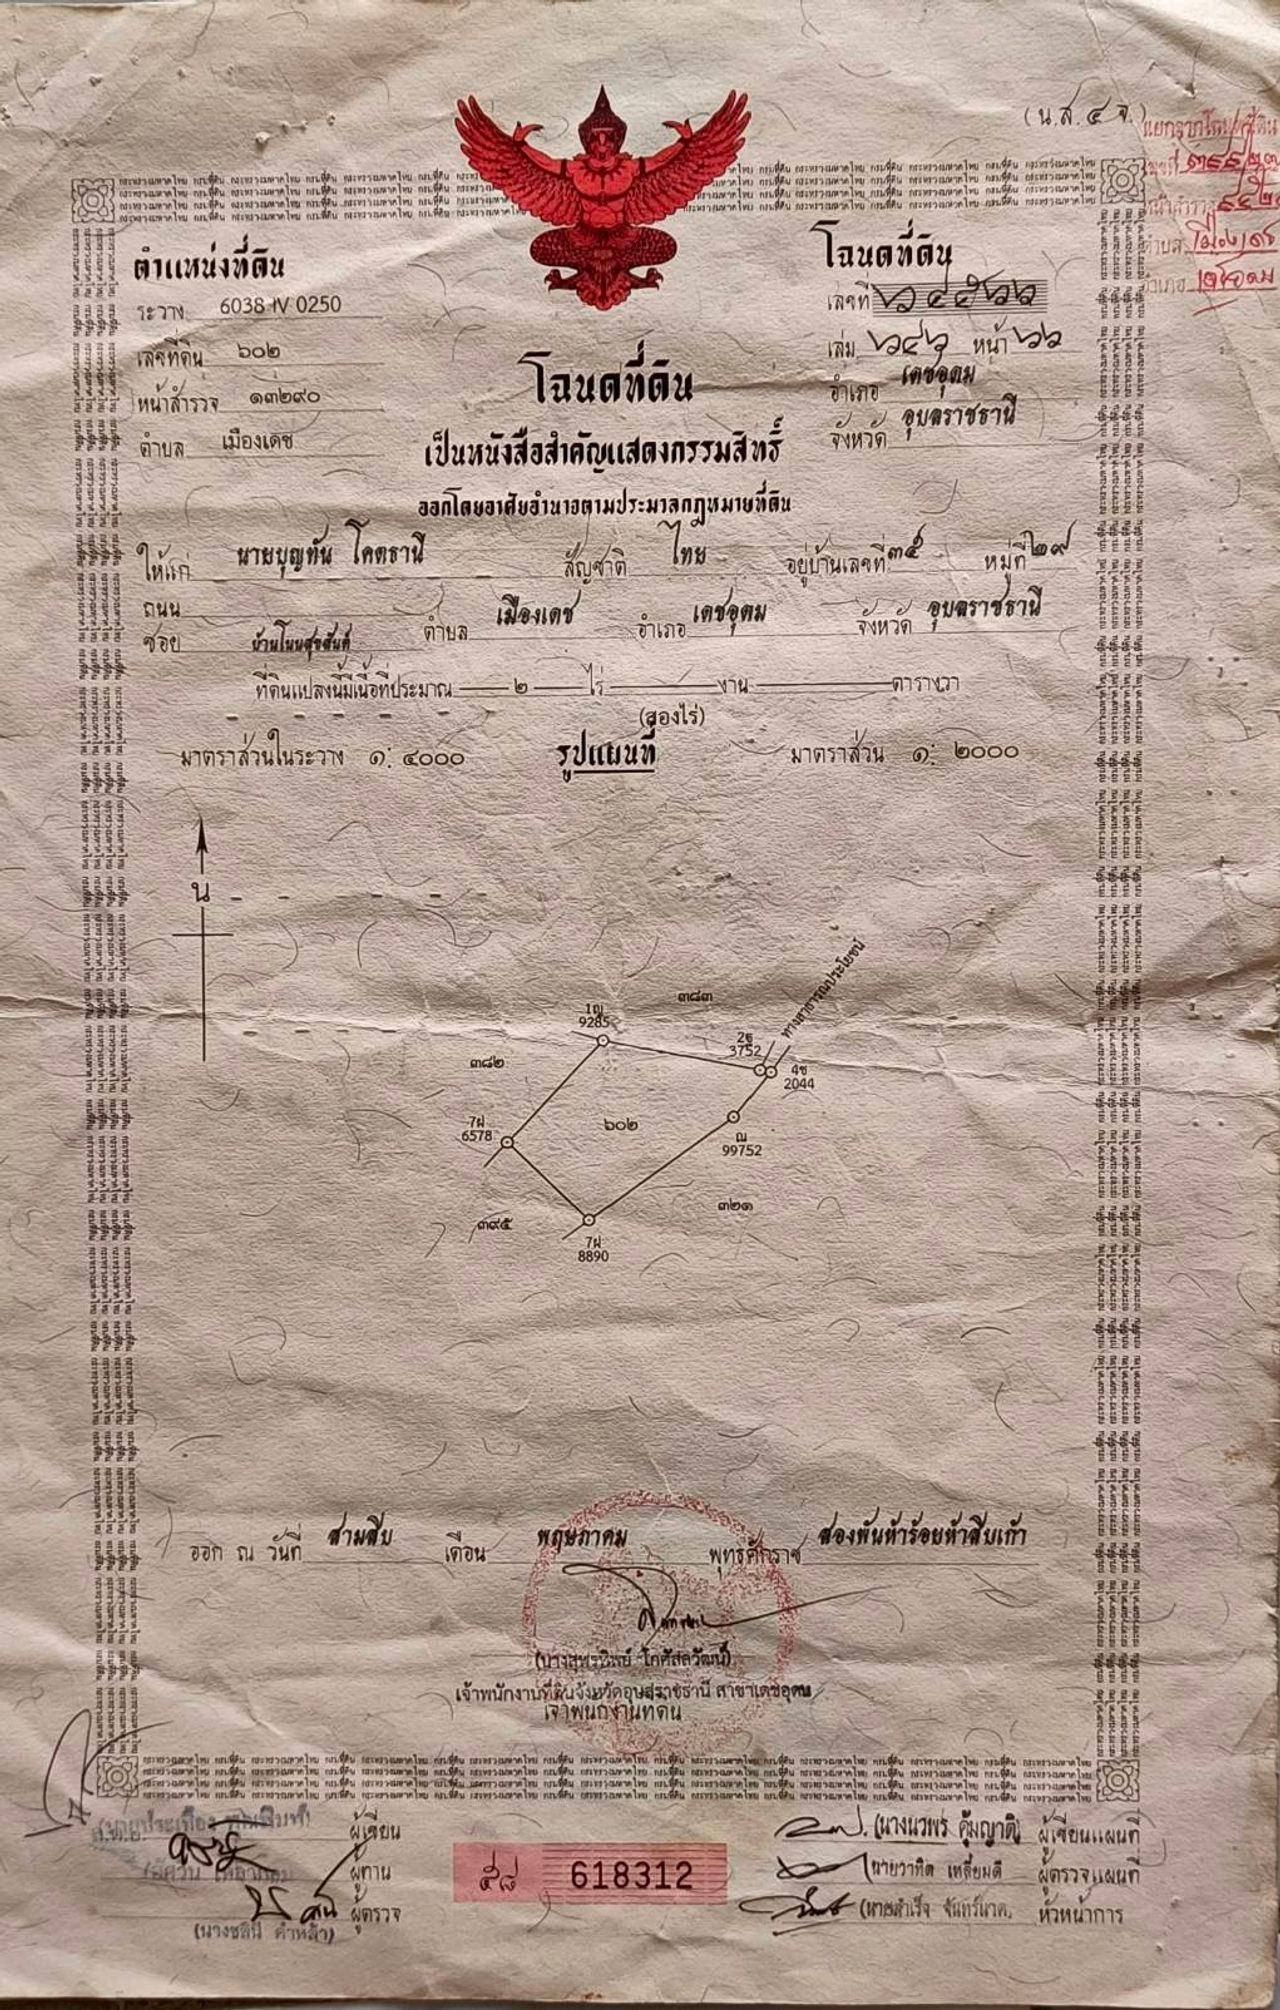 (น.ส. ๔ จ.)
ตำแหน่งที่ดิน
ระวาง 6038 IV 0250
เลขที่ดิน ๖๐๒
หน้าสำรวจ ๑๓๒๙๐
ตำบล เมืองเดช
โฉนดที่ดิน
เลขที่
เล่ม หน้า ๖๖
อำเภอ เดชอุดม
จังหวัด อุบลราชธานี
โฉนดที่ดิน
เป็นหนังสือสำคัญแสดงกรรมสิทธิ์
ออกโดยอาศัยอำนาจตามประมวลกฎหมายที่ดิน
ให้แก่ นายบุญทัน โคตธานี สัญชาติ ไทย อยู่บ้านเลขที่ ๓๕ หมู่ที่ ๒๙
ถนน
ซอย บ้านโนนสุขสันต์ ตำบล เมืองเดช อำเภอ เดชอุดม จังหวัด อุบลราชธานี
ที่ดินแปลงนี้มีเนื้อที่ประมาณ ๒ ไร่ งาน ตารางวา
(สองไร่)
มาตราส่วนในระวาง ๑: ๔๐๐๐ รูปแผนที่ มาตราส่วน ๑: ๒๐๐๐
น
ทางสาธารณประโยชน์
๓๘๓
1ญ
9285
2ฐ
3752
๓๘๒
4ช
2044
7ฝ
6578
๖๐๒
ณ
99752
๓๒๑
๓๙๕
7ฝ
8890
ออก ณ วันที่ สามสิบ เดือน พฤษภาคม พุทธศักราช สองพันห้าร้อยห้าสิบเก้า
(นางสุพรทิพย์ โกศัลวัฒน์)
เจ้าพนักงานที่ดินจังหวัดอุบลราชธานี สาขาเดชอุดม
เจ้าพนักงานที่ดิน
ผู้เขียน
ผู้ทาน
ผู้ตรวจ
(นางชลินี คำหล้า)
๕๘ 618312
(นางนวพร คุ้มญาติ) ผู้เขียนแผนที่
นายวาทิต เหลี่ยมดี ผู้ตรวจแผนที่
(นายสำเร็จ จันทร์นาค. หัวหน้าการ